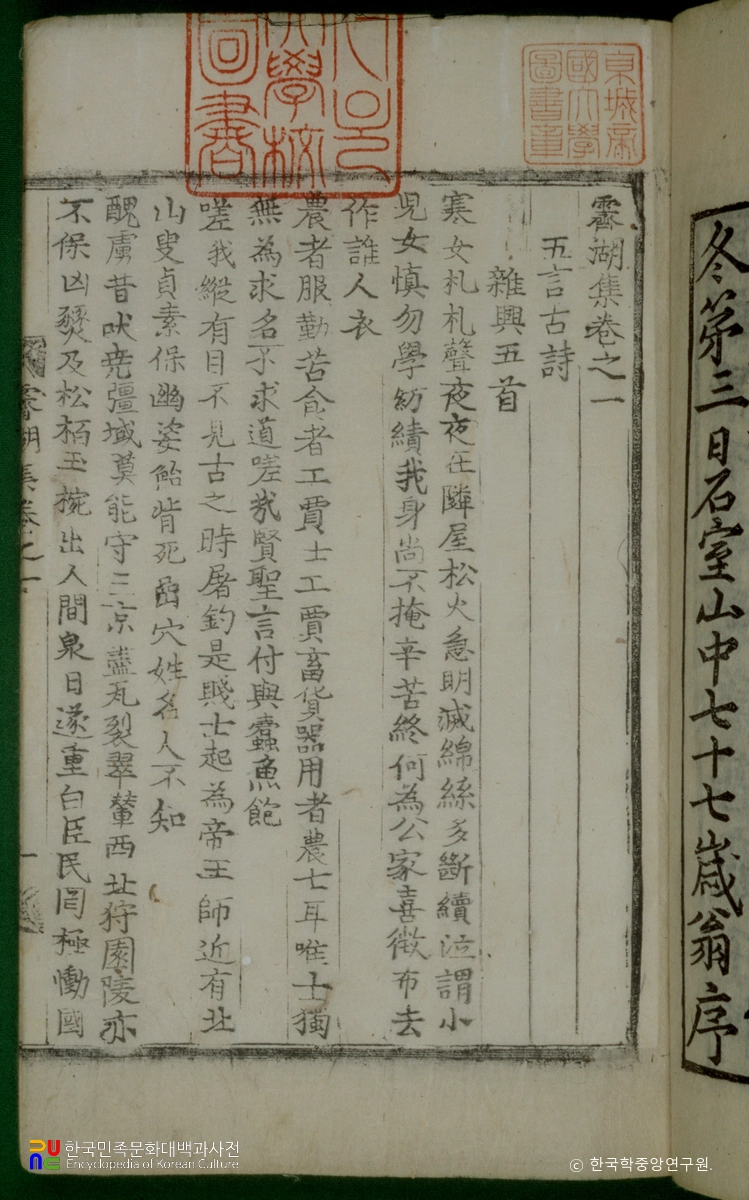 冬第三日石室山中七十七歲翁序
霽湖集卷之一
五言古詩
雜興五首
寒女札札聲夜夜在隣屋松火急明滅綿絲多斷續泣謂小
兒女愼勿學紡績我身尙不掩辛苦終何爲公家喜徵布去
作誰人衣
農者服勤苦食者工賈士工賈畜貨器用者農七耳唯士獨
無為求名不求道嗟哉賢聖言付與蠹魚飽
嗟我縱有目不見古之時屠釣是賤士起為帝王師近有北
山叟貞素保幽姿鮐背死嵒穴姓名人不知
醜虜昔吠堯疆域莫能守三京盡瓦裂翠輦西北狩園陵亦
不保凶燹及松栢玉椀出人間泉日遂重白臣民罔極慟國
霽湖集卷之一
一
東城帝
國大學
圖書章
大學校
圖書
한국민족문화대백과사전
Encyclopedia of Korean Culture
© 한국학중앙연구원.